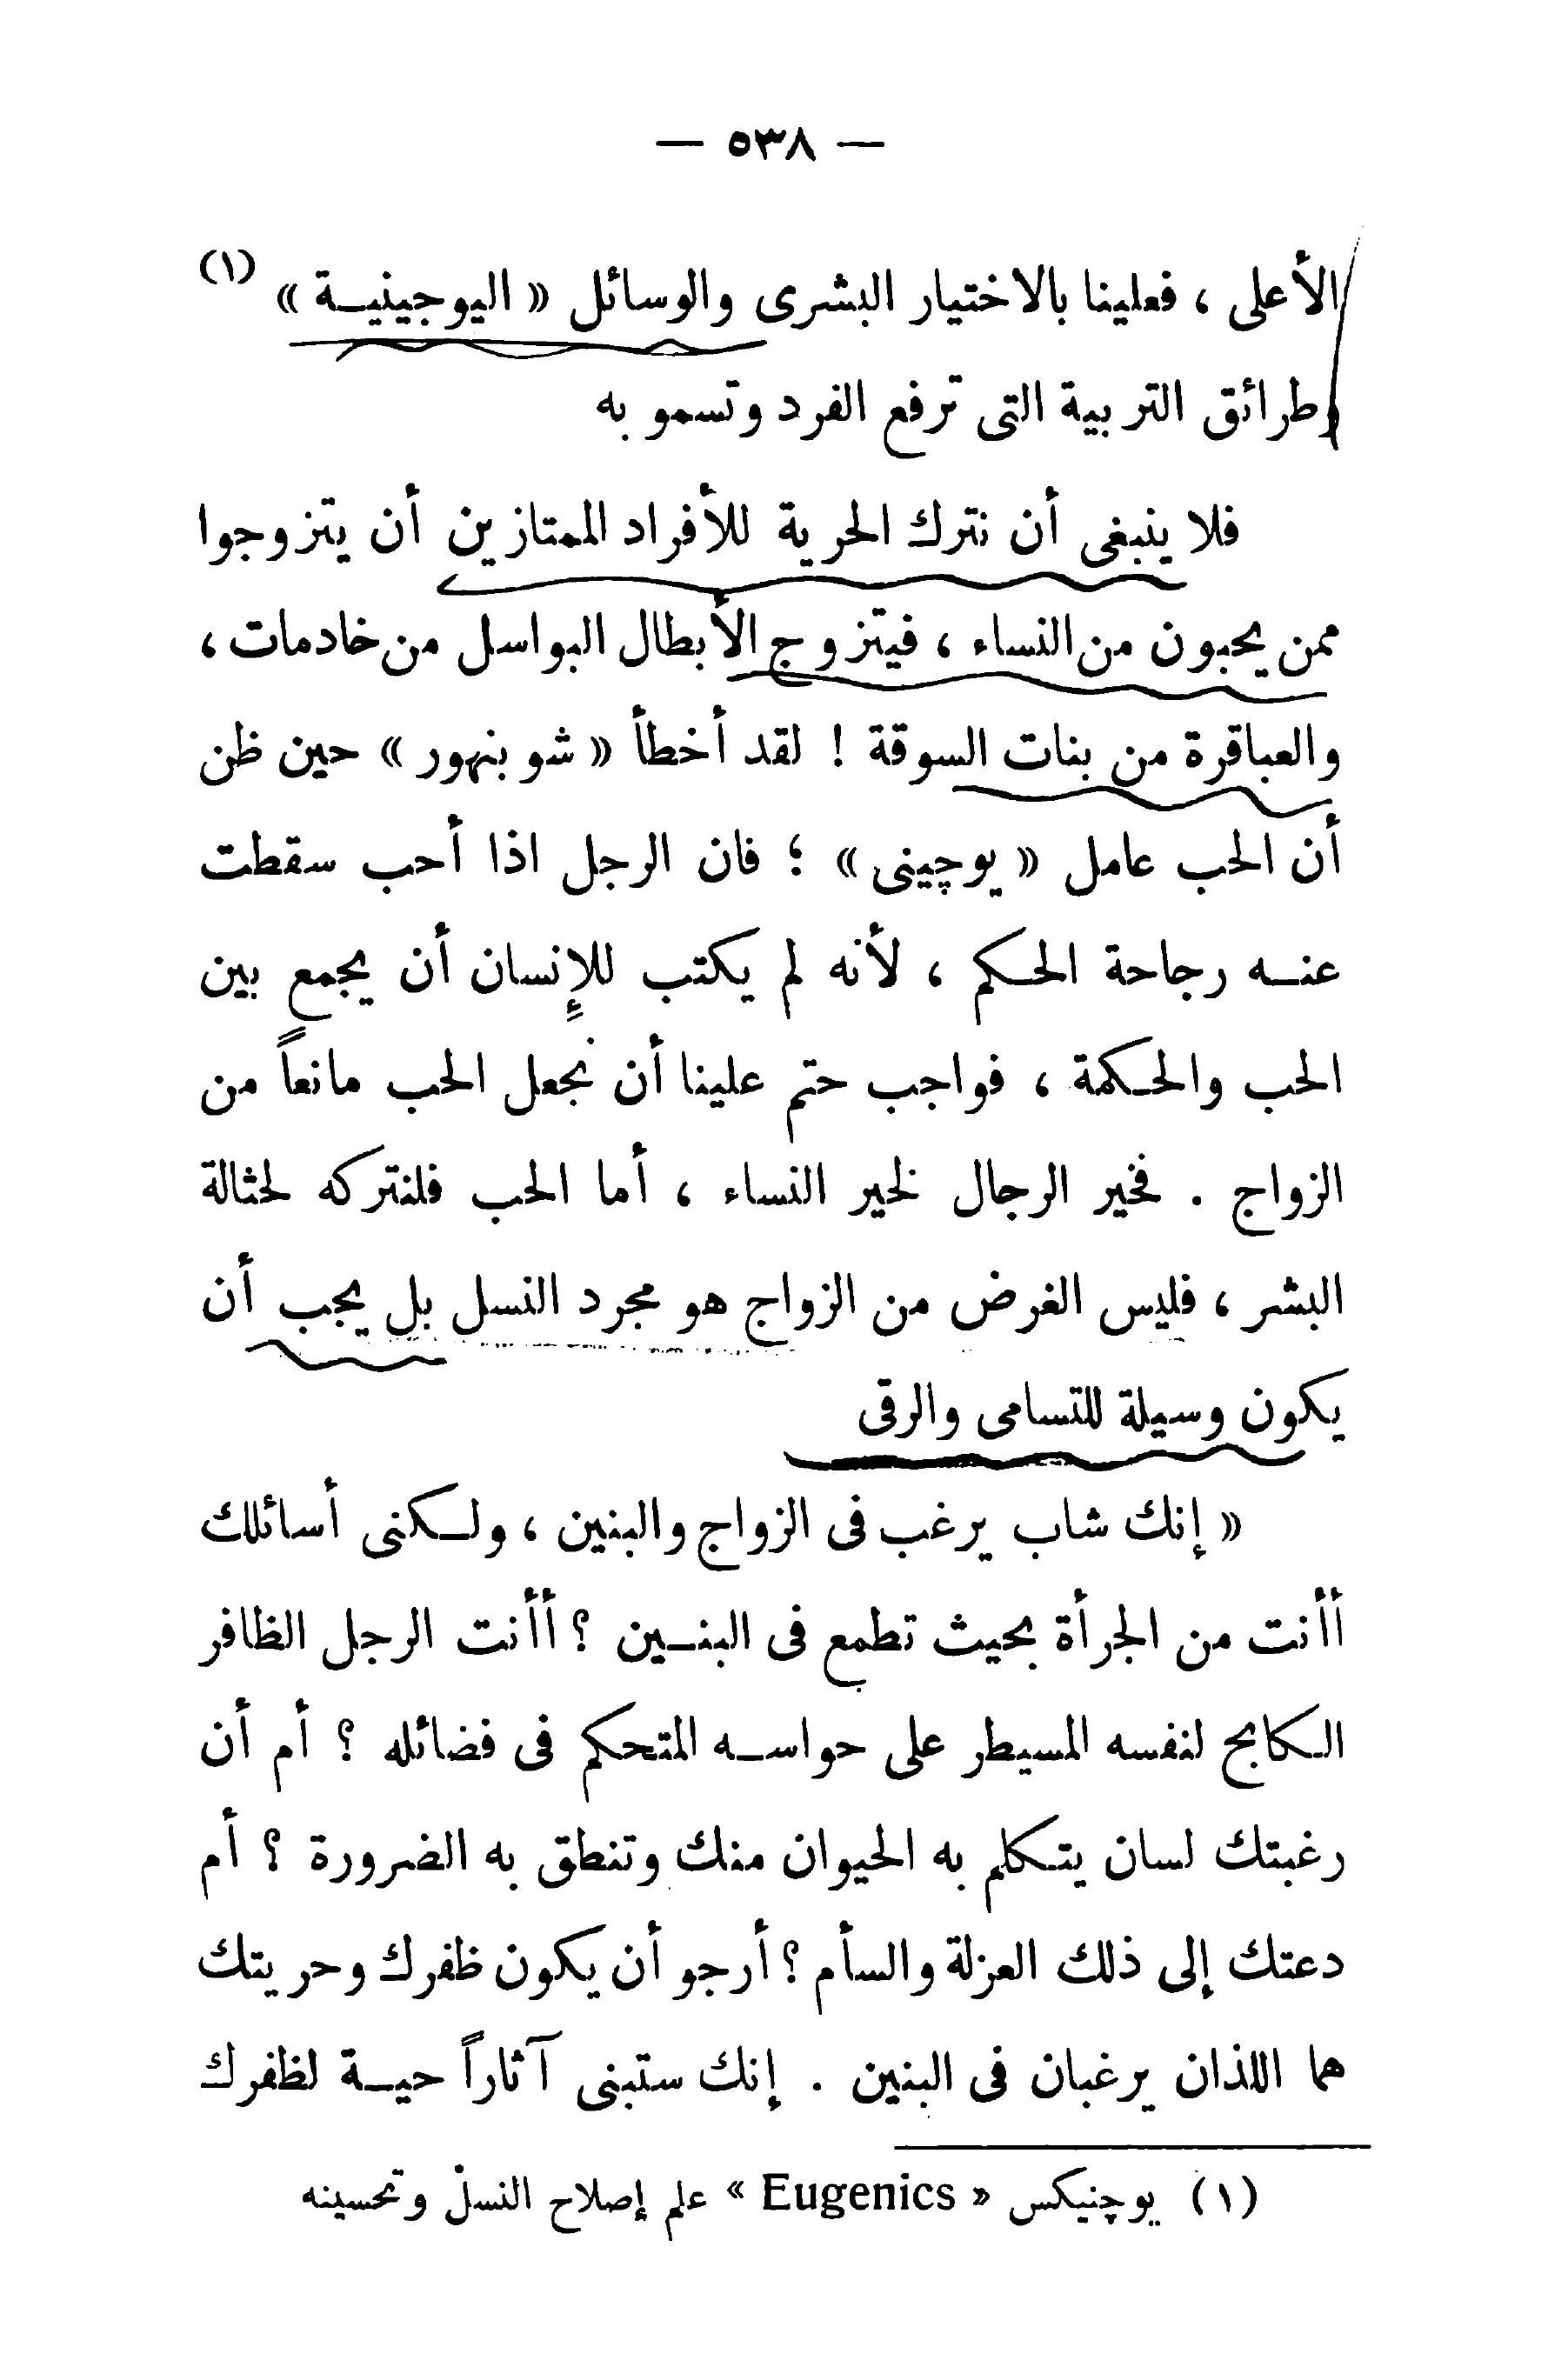 — ٥٣٨ —
الأعلى ، فعلينا بالاختيار البشرى والوسائل « اليوجينيـة » (١)
وطرائق التربية التى ترفع الفرد وتسمو به
فلا ينبغى أن نترك الحرية للأفراد الممتازين أن يتزوجوا
ممن يحبون من النساء ، فيتزوج الأبطال البواسل من خادمات ،
والعباقرة من بنات السوقة ! لقد أخطأ « شوبنهور » حين ظن
أن الحب عامل « يوچينى » ؛ فان الرجل اذا أحب سقطت
عنـه رجاحة الحـكم ، لأنه لم يكتب للإنسان أن يجمع بين
الحب والحـكمة ، فواجب حتم علينا أن نجعل الحب مانعاً من
الزواج . فخير الرجال لخير النساء ، أما الحب فلنتركه لحثالة
البشر ، فليس الغرض من الزواج هو مجرد النسل بل يجب أن
يكون وسيلة للتسامى والرقى
« إنك شاب يرغب فى الزواج والبنين ، ولـكنى أسائلك
أأنت من الجرأة بحيث تطمع فى البنـين ؟ أأنت الرجل الظافر
الـكابح لنفسه المسيطر على حواسـه المتحكم فى فضائله ؟ أم أن
رغبتك لسان يتـكلم به الحيوان منك وتنطق به الضرورة ؟ أم
دعتك إلى ذلك العزلة والسأم ؟ أرجو أن يكون ظفرك وحريتك
هما اللذان يرغبان فى البنين . إنك ستبنى آثاراً حيـة لظفرك
(١) يوچنيكس « Eugenics » علم إصلاح النسل وتحسينه